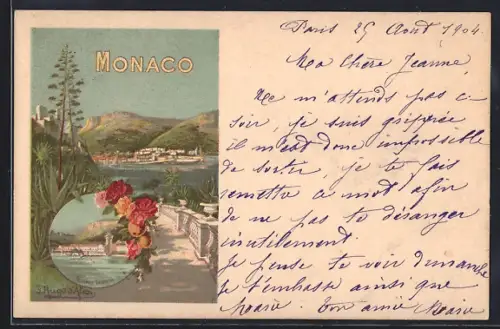 MONACO
Paris 25 Août 1904.
Ma Chère Jeanne,
Ne m'attends pas ce
soir, je suis grippée
il m'est donc impossible
de sortir, je te fais
remettre ce mot afin
de ne pas te déranger
inutilement.
Je pense te voir dimanche
je t'embrasse ainsi que
Marie. Ton amie Marie